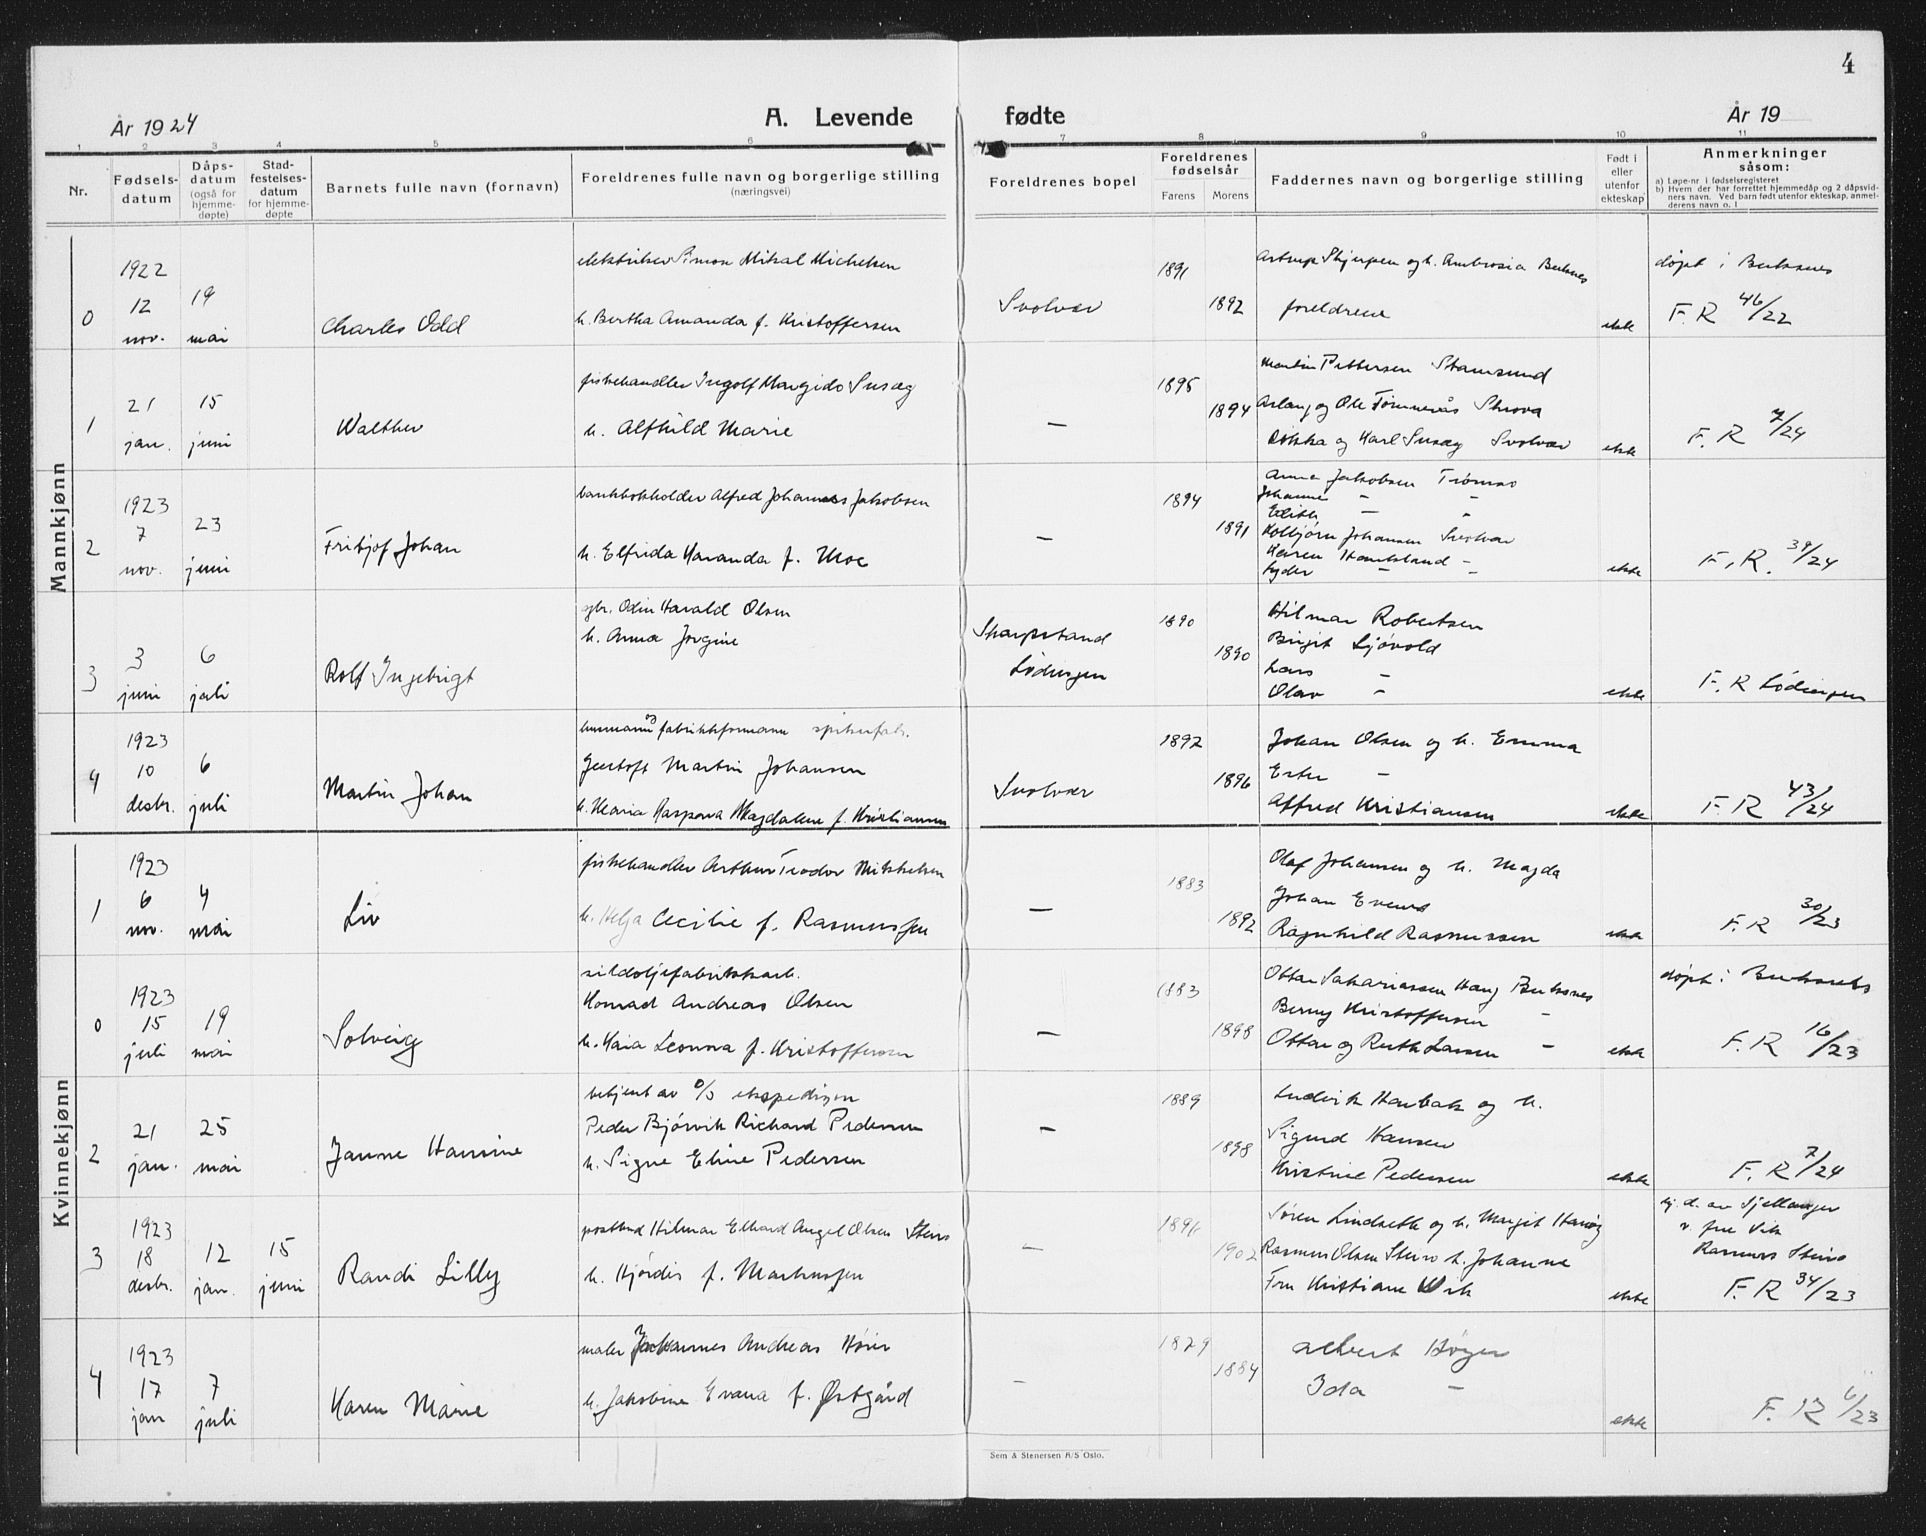 4
År 1924
A. Levende
fødte
År 19
1 2 3 4 5 6 7 8 9 10 11
Nr.
Fødsels-
datum
Dåps-
datum
(også for
hjemme-
døpte)
Stad-
festelses-
datum
for hjemme-
døpte
Barnets fulle navn (fornavn)
Foreldrenes fulle navn og borgerlige stilling
(næringsvei)
Foreldrenes bopel
Foreldrenes
fødselsår
Farens Morens
Faddernes navn og borgerlige stilling
Født i
eller
utenfor
ekteskap
Anmerkninger
såsom:
a) Løpe-nr i fødselsregisteret
b) Hvem der har forrettet hjemmedåp og 2 dåpsvid-
ners navn. Ved barn født utenfor ekteskap, anmel-
derens navn o. l
Mannkjønn
0
1922
12
nov.
19
mai
Charles Odd
elektriker Simon Mikal Michelsen
h. Bertha Amanda f. Kristoffersen
Svolvær
1891
1892
Astrup Skjerpen og h. Ambrosia Buksnes
foreldrene
ekte
døpt i Buksnes
F. R 46/22
1
21
jan.
15
juni
Walther
fiskehandler Ingolf Margido Susæg
h. Alfhild Marie
—
1895
1894
Martin Pettersen Stamsund
Aslaug og Ole Tømmerås Skrova
og Karl Susæg Svolvær
ekte
F. R 7/24
2
1923
7
nov.
23
juni
Fritjof Johan
bankbokholder Alfred Johannes Jakobsen
h. Elfrida f. Moe
—
1894
1891
Anna Jakobsen Tromsø
Johanne — "
Edith — "
Kolbjørn Johansen Svolvær
Karen —
—
ekte
F. R. 39/24
3
3
juni
6
juli
Rolf Ingebrigt
gbr. Odin Harald Olsen
h. Anna Jorgine
Skarpstand
Lødingen
1890
1890
Hilmar Robertsen
Birgit Ljøvold
Lars —
Olav —
ekte
F. R Lødingen
4
1923
10
desbr.
6
juli
Martin Johan
og fabrikkformann spikerfabr.
Martin Johansen
h. Maria Kaspara Magdalene f. Kristiansen
Svolvær
1892
1896
Johan Olsen og h. Emma
Ester —
Alfred Kristiansen
ekte
F. R 43/24
Kvinnekjønn
1
1923
6
nov.
4
mai
Liv
fiskehandler Arthur Teodor Mikkelsen
h. Helga Cecilie f. Rasmussen
—
1883
1892
Olaf Johansen og h. Magda
Johan
Ragnhild Rasmussen
ekte
F. R 30/23
0
1923
15
juli
19
mai
Solveig
sildoljefabrikkarb.
Konrad Andreas Olsen
h. Maia Leonora f. Kristoffersen
—
1883
1898
Ottar Sakariassen Haug Buksnes
Berny Kristoffersen —
Ottar og Ruth Larsen —
ekte
døpt i Buksnes
F. R 16/23
2
21
jan.
25
mai
Janne Hansine
betjent av o/s ekspedisjon
Peder Bjørvik Richard Pedersen
h. Signe Eline Pedersen
—
1889
1898
Ludvik Harbak og h.
Sigurd Hansen
Kristine Pedersen
ekte
F. R 7/24
3
1923
18
desbr.
12
jan.
15
juni
Randi Lilly
postbud Hilmar Edvard Angel Olsen Steiro
h. Hjørdis f. Markussen
—
1896
1902
Søren Lindseth og h. Margit
Rasmus Olsen Steiro h. Johanne
Fru Kristiane Wik
ekte
hj. d. av Sjellanger
v. fru Vik
Rasmus Steiro
F. R 34/23
4
1923
17
jan
7
juli
Karen Marie
maler Johannes Andreas Høier
h. Jakobine Evana f. Østgård
—
1879
1884
Albert Høyer
Ida —
ekte
F. R 6/23
Sem & Stenersen A/S Oslo.